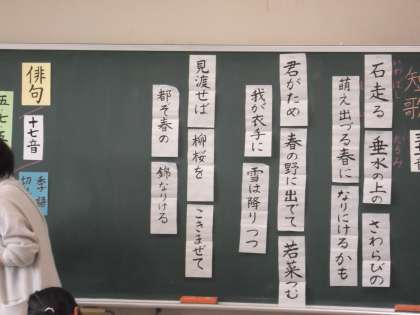 短歌
三十一音
いわばし
石走る 垂水の上の さわらびの
たるみ
萌え出づる春に なりにけるかも
君がため 春の野に出でて 若菜つむ
我が衣手に 雪は降りつつ
見渡せば 柳桜を こきまぜて
都ぞ春の 錦なりける
俳句
十七音
季語
切
五・七・五